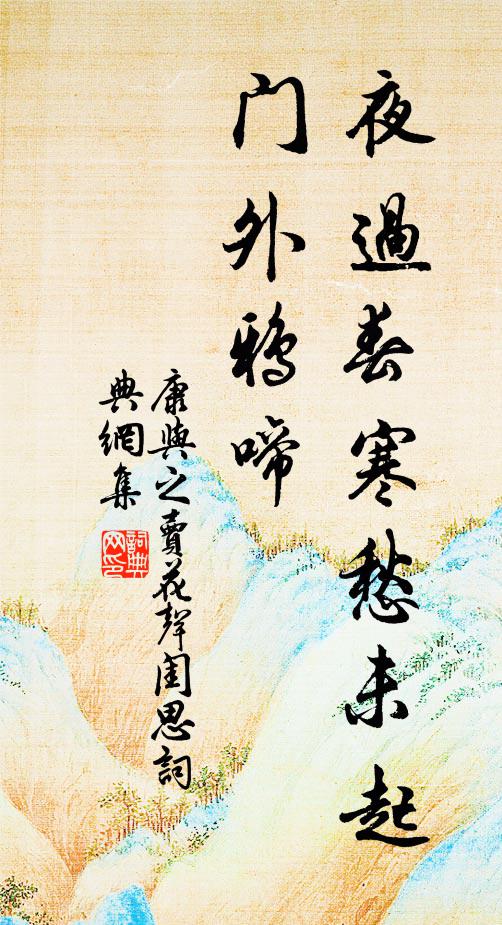 夜過春寒愁未起
門外鴉啼
康與之賣花聲閨思詞
典網集
詞典
网印